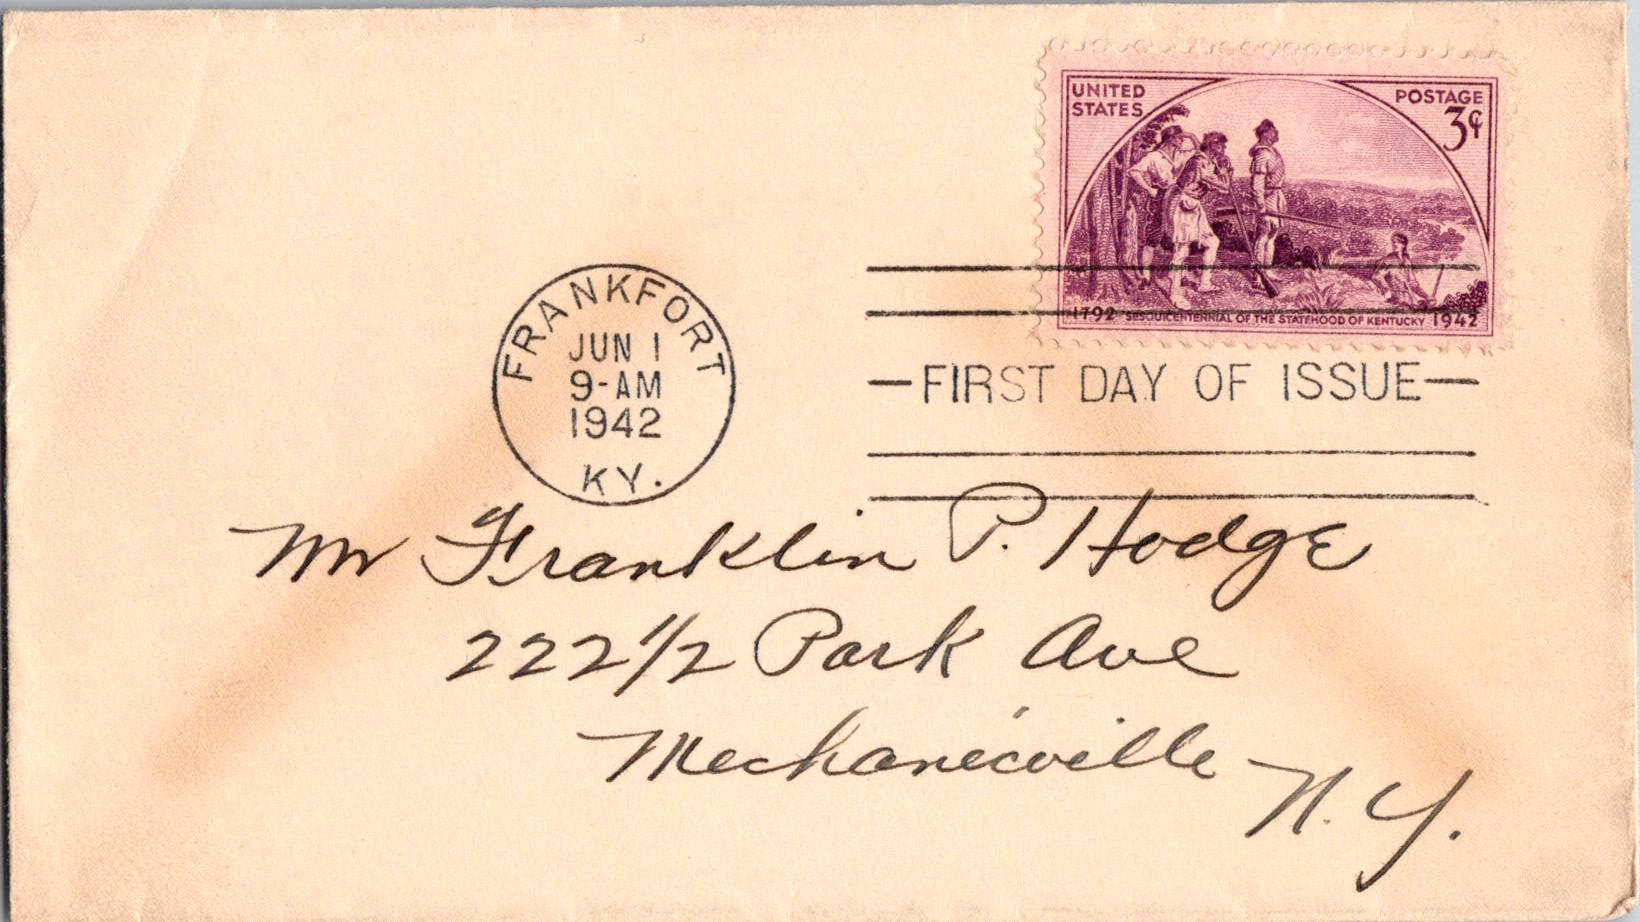 UNITED STATES
POSTAGE
3¢
1792 SESQUICENTENNIAL OF THE STATEHOOD OF KENTUCKY 1942
FRANKFORT
JUN 1
9-AM
1942
KY.
FIRST DAY OF ISSUE
Mr Franklin P. Hodge
222 1/2 Park Ave
Mechanicville N.Y.